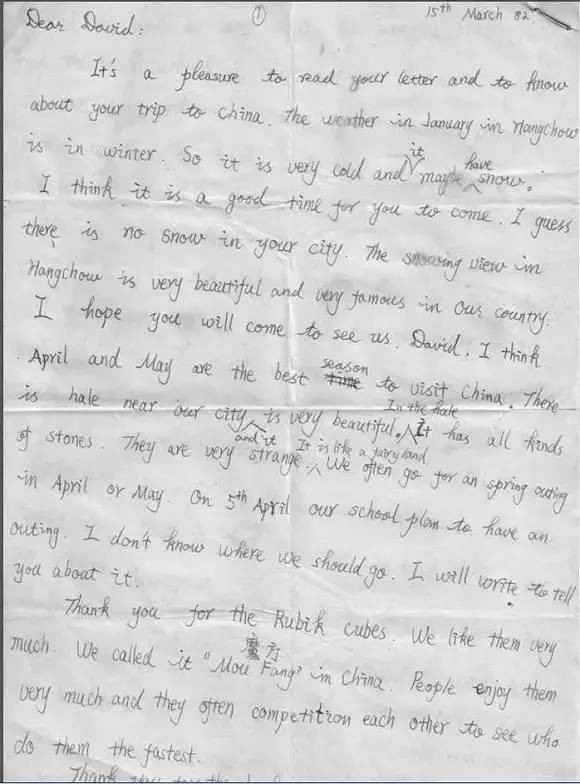 ①
15th March 82
Dear David:
It's a pleasure to read your letter and to know
about your trip to China. The weather in January in Hangchow
is in winter. So it is very cold and it maybe have snow.
I think it is a good time for you to come. I guess
there is no snow in your city. The snowing view in
Hangchow is very beautiful and very famous in our country.
I hope you will come to see us. David, I think
April and May are the best season to visit China. There
is hale near our city and it is very beautiful. In the hale It has all kinds
of stones. They are very strange. It is like a fairyland. We often go for an spring outing
in April or May. On 5th April our school plan to have an
outing. I don't know where we should go. I will write to tell
you about it.
Thank you for the Rubik cubes. We like them very
much. We called it "Mou Fang" 魔方 in China. People enjoy them
very much and they often competition each other to see who
do them the fastest.
Thank you for the